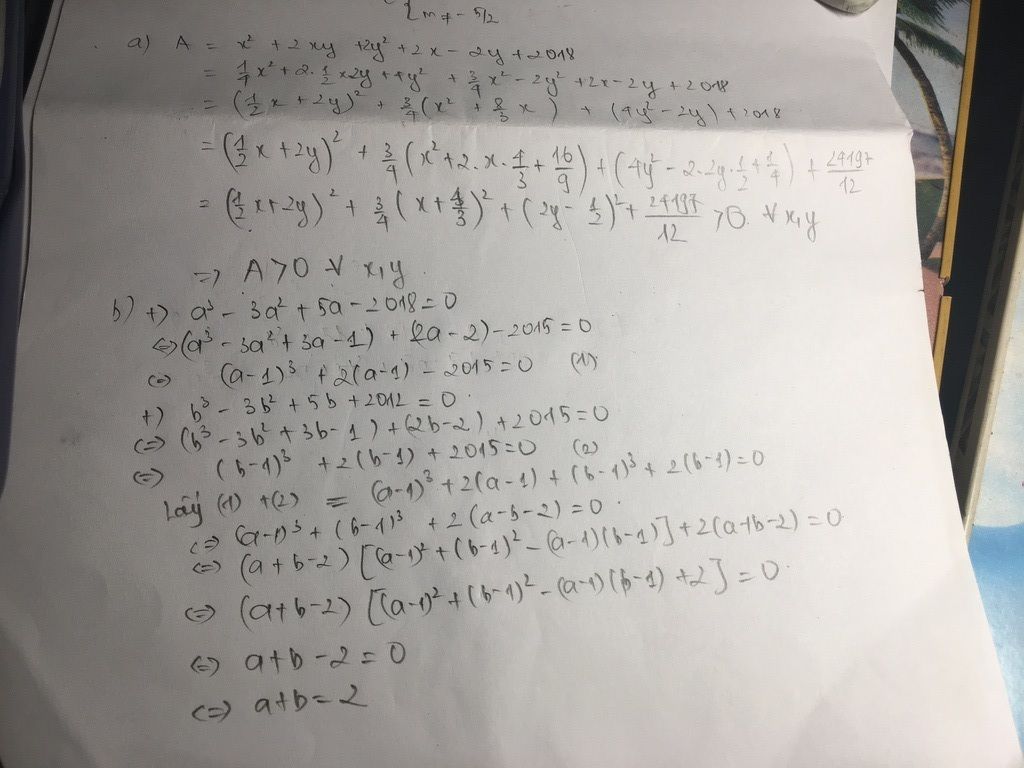 { m ≠ - 5/2
a) A = x² + 2xy + 2y² + 2x - 2y + 2018
= 1/4 x² + 2. 1/2 x 2y + 4y² + 3/4 x² - 2y² + 2x - 2y + 2018
= (1/2 x + 2y)² + 3/4 (x² + 8/3 x) + (4y² - 2y) + 2018
= (1/2 x + 2y)² + 3/4 (x² + 2. x. 4/3 + 16/9) + (4y² - 2.2y. 1/2 + 1/4) + 24197/12
= (1/2 x + 2y)² + 3/4 (x + 4/3)² + (2y - 1/2)² + 24197/12 > 0 ∀ x, y
=> A > 0 ∀ x, y.
b) +) a³ - 3a² + 5a - 2018 = 0
<=> (a³ - 3a² + 3a - 1) + (2a - 2) - 2015 = 0
<=> (a-1)³ + 2(a-1) - 2015 = 0 (1)
+) b³ - 3b² + 5b + 2012 = 0.
<=> (b³ - 3b² + 3b - 1) + (2b - 2) + 2015 = 0
<=> (b-1)³ + 2(b-1) + 2015 = 0 (2)
Lấy (1) + (2) = (a-1)³ + 2(a-1) + (b-1)³ + 2(b-1) = 0
<=> (a-1)³ + (b-1)³ + 2(a-b-2) = 0.
<=> (a+b-2) [(a-1)² + (b-1)² - (a-1)(b-1)] + 2(a+b-2) = 0
<=> (a+b-2) [(a-1)² + (b-1)² - (a-1)(b-1) + 2] = 0.
<=> a+b-2 = 0
<=> a+b = 2